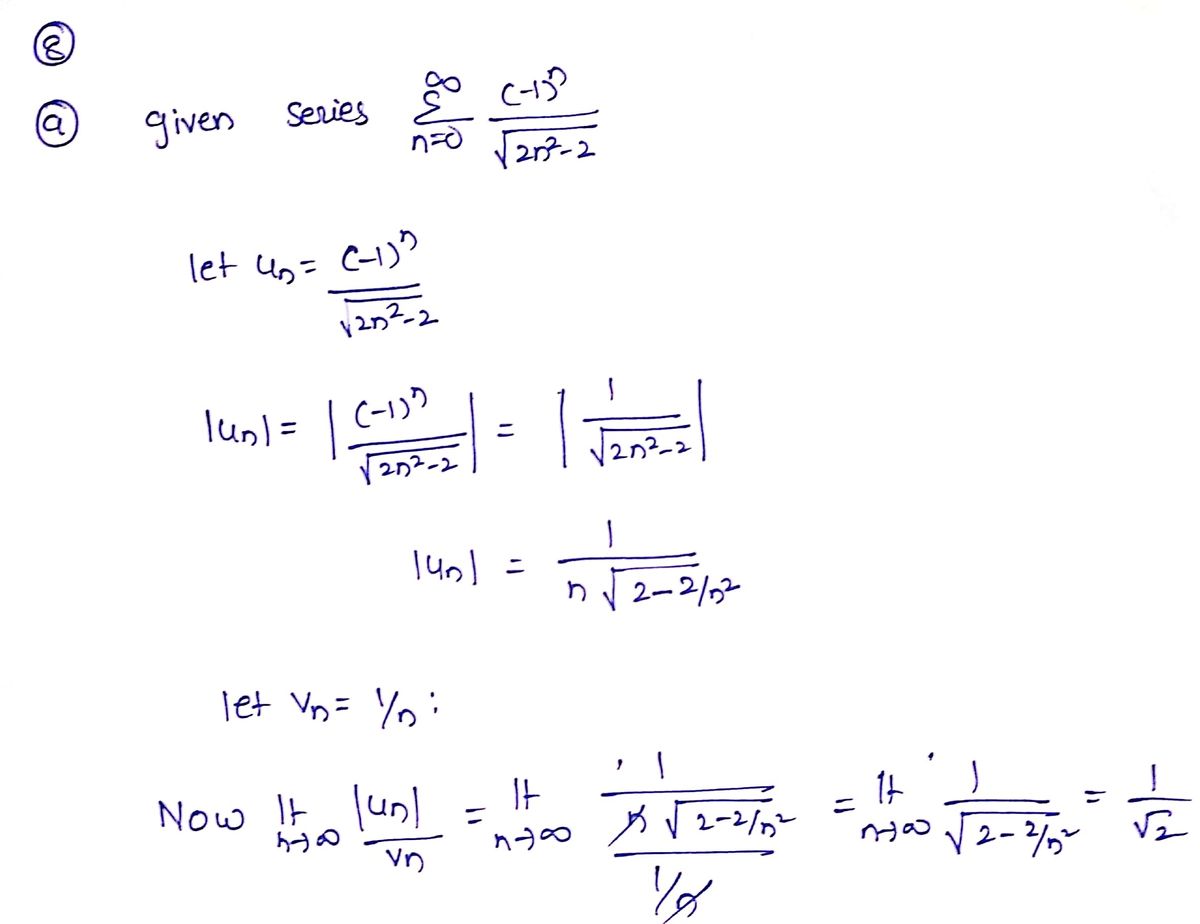 ⑧
ⓐ given series \sum_{n=0}^{\infty} \frac{(-1)^n}{\sqrt{2n^2-2}}
let u_n = \frac{(-1)^n}{\sqrt{2n^2-2}}
|u_n| = \left| \frac{(-1)^n}{\sqrt{2n^2-2}} \right| = \left| \frac{1}{\sqrt{2n^2-2}} \right|
|u_n| = \frac{1}{n\sqrt{2-2/n^2}}
let v_n = 1/n :
Now lt_{n→∞} \frac{|u_n|}{v_n} = lt_{n→∞} \frac{\frac{1}{n\sqrt{2-2/n^2}}}{1/n} = lt_{n→∞} \frac{1}{\sqrt{2-2/n^2}} = \frac{1}{\sqrt{2}}